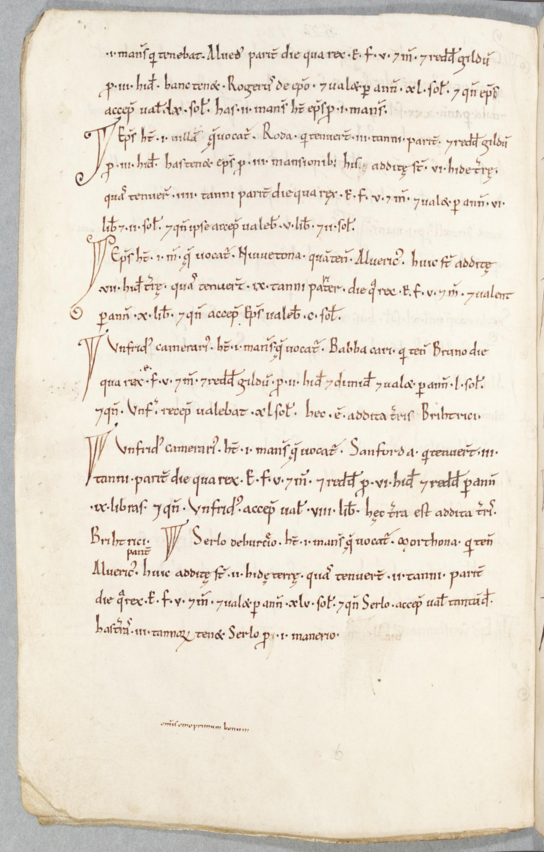 ·i· mans̄ q̄ tenebat· Alveđ parit̄ die qua rex· E· f· v· ⁊ m̄· ⁊ redđ gildū
p̄· iii· hiđ· hanc tenę· Rogerꝰ de ep̄o· ⁊ ualæ p̄ ann̄· xl· sol̄· ⁊ qn̄ ep̄s
accep̄ ual̄ · sol̄· has· ii· mans̄ ht̄ ep̄s p̄· i· mans̄·
Ep̄s ht̄· i· uillā q̄ uocat̄· Roda· q̄ tenuer̄t· iii· tanni parit̄· ⁊ redđ gildū
p̄· iii· hiđ· has tenę ep̄s p̄· iii· mansionibꝰ his addite st̄· vi· hidę t̄rę·
quaſ tenuer̄t· iiii· tanni parit̄ die qua rex· E· f· v· ⁊ m̄· ⁊ ualæ p̄ ann̄· vi·
lib̄ ⁊· ii· sol̄· ⁊ qn̄ ipse accep̄ ualeb̄· v· lib̄· ⁊ ii· sol̄·
Ep̄s ht̄· i· m̄· q̄ uocat̄· Nuuetona· quā ten̄· Aluericꝰ· huic st̄ additę
xii· hiđ t̄rę· quaſ tenuer̄t· ix· tanni parit̄er· die q̄ rex· E· f· v· ⁊ m̄· ⁊ ualent
p̄ ann̄· x· lib̄· ⁊ qn̄ accep̄ Ep̄s ualeb̄· c· sol̄·
Vnfridꝰ camerariꝰ· ht̄· i· mans̄ q̄ uocat̄· Babba cari· q̄ ten̄ Bruno die
qua rex· E· f· v· ⁊ m̄· ⁊ redđ gildū· p̄· ii· hiđ ⁊ dimiđ ⁊ ualæ p̄ ann̄· l· sol̄·
⁊ qn̄· Vnfꝰ· recep̄ ualebat· xl sol̄· hec· ē· addita t̄ris Brihtrici·
Vnfridꝰ camerariꝰ· ht̄· i· mans̄ q̄ uocat̄· Sanforda· q̄ tenuer̄t· iii·
tanni· parit̄ die qua rex· E· f· v· ⁊ m̄· ⁊ redđ p̄· vi· hiđ ⁊ redđ p̄ ann̄
ix· libras· ⁊ qn̄· Vnfridꝰ· accep̄ ual̄· viii· lib̄· hęc t̄ra est addita t̄rī·
Brihtrici· Serlo deburcīo· ht̄· i· mans̄ q̄ uocat̄· Morthona· q̄ ten̄
parit̄
Aluericꝰ· huic additę st̄· ii· hidę terrę· quaſ tenuer̄t· ii· tanni· parit̄
die q̄ rex· E· f· v· ⁊ m̄· ⁊ ualæ p̄ ann̄· xlv· sol̄· ⁊ qn̄ Serlo· accep̄ ual̄ tantūđ·
has t̄raſ· iii· tannoꝝ tenę Serlo p̄· i· manerio·
primum bonum